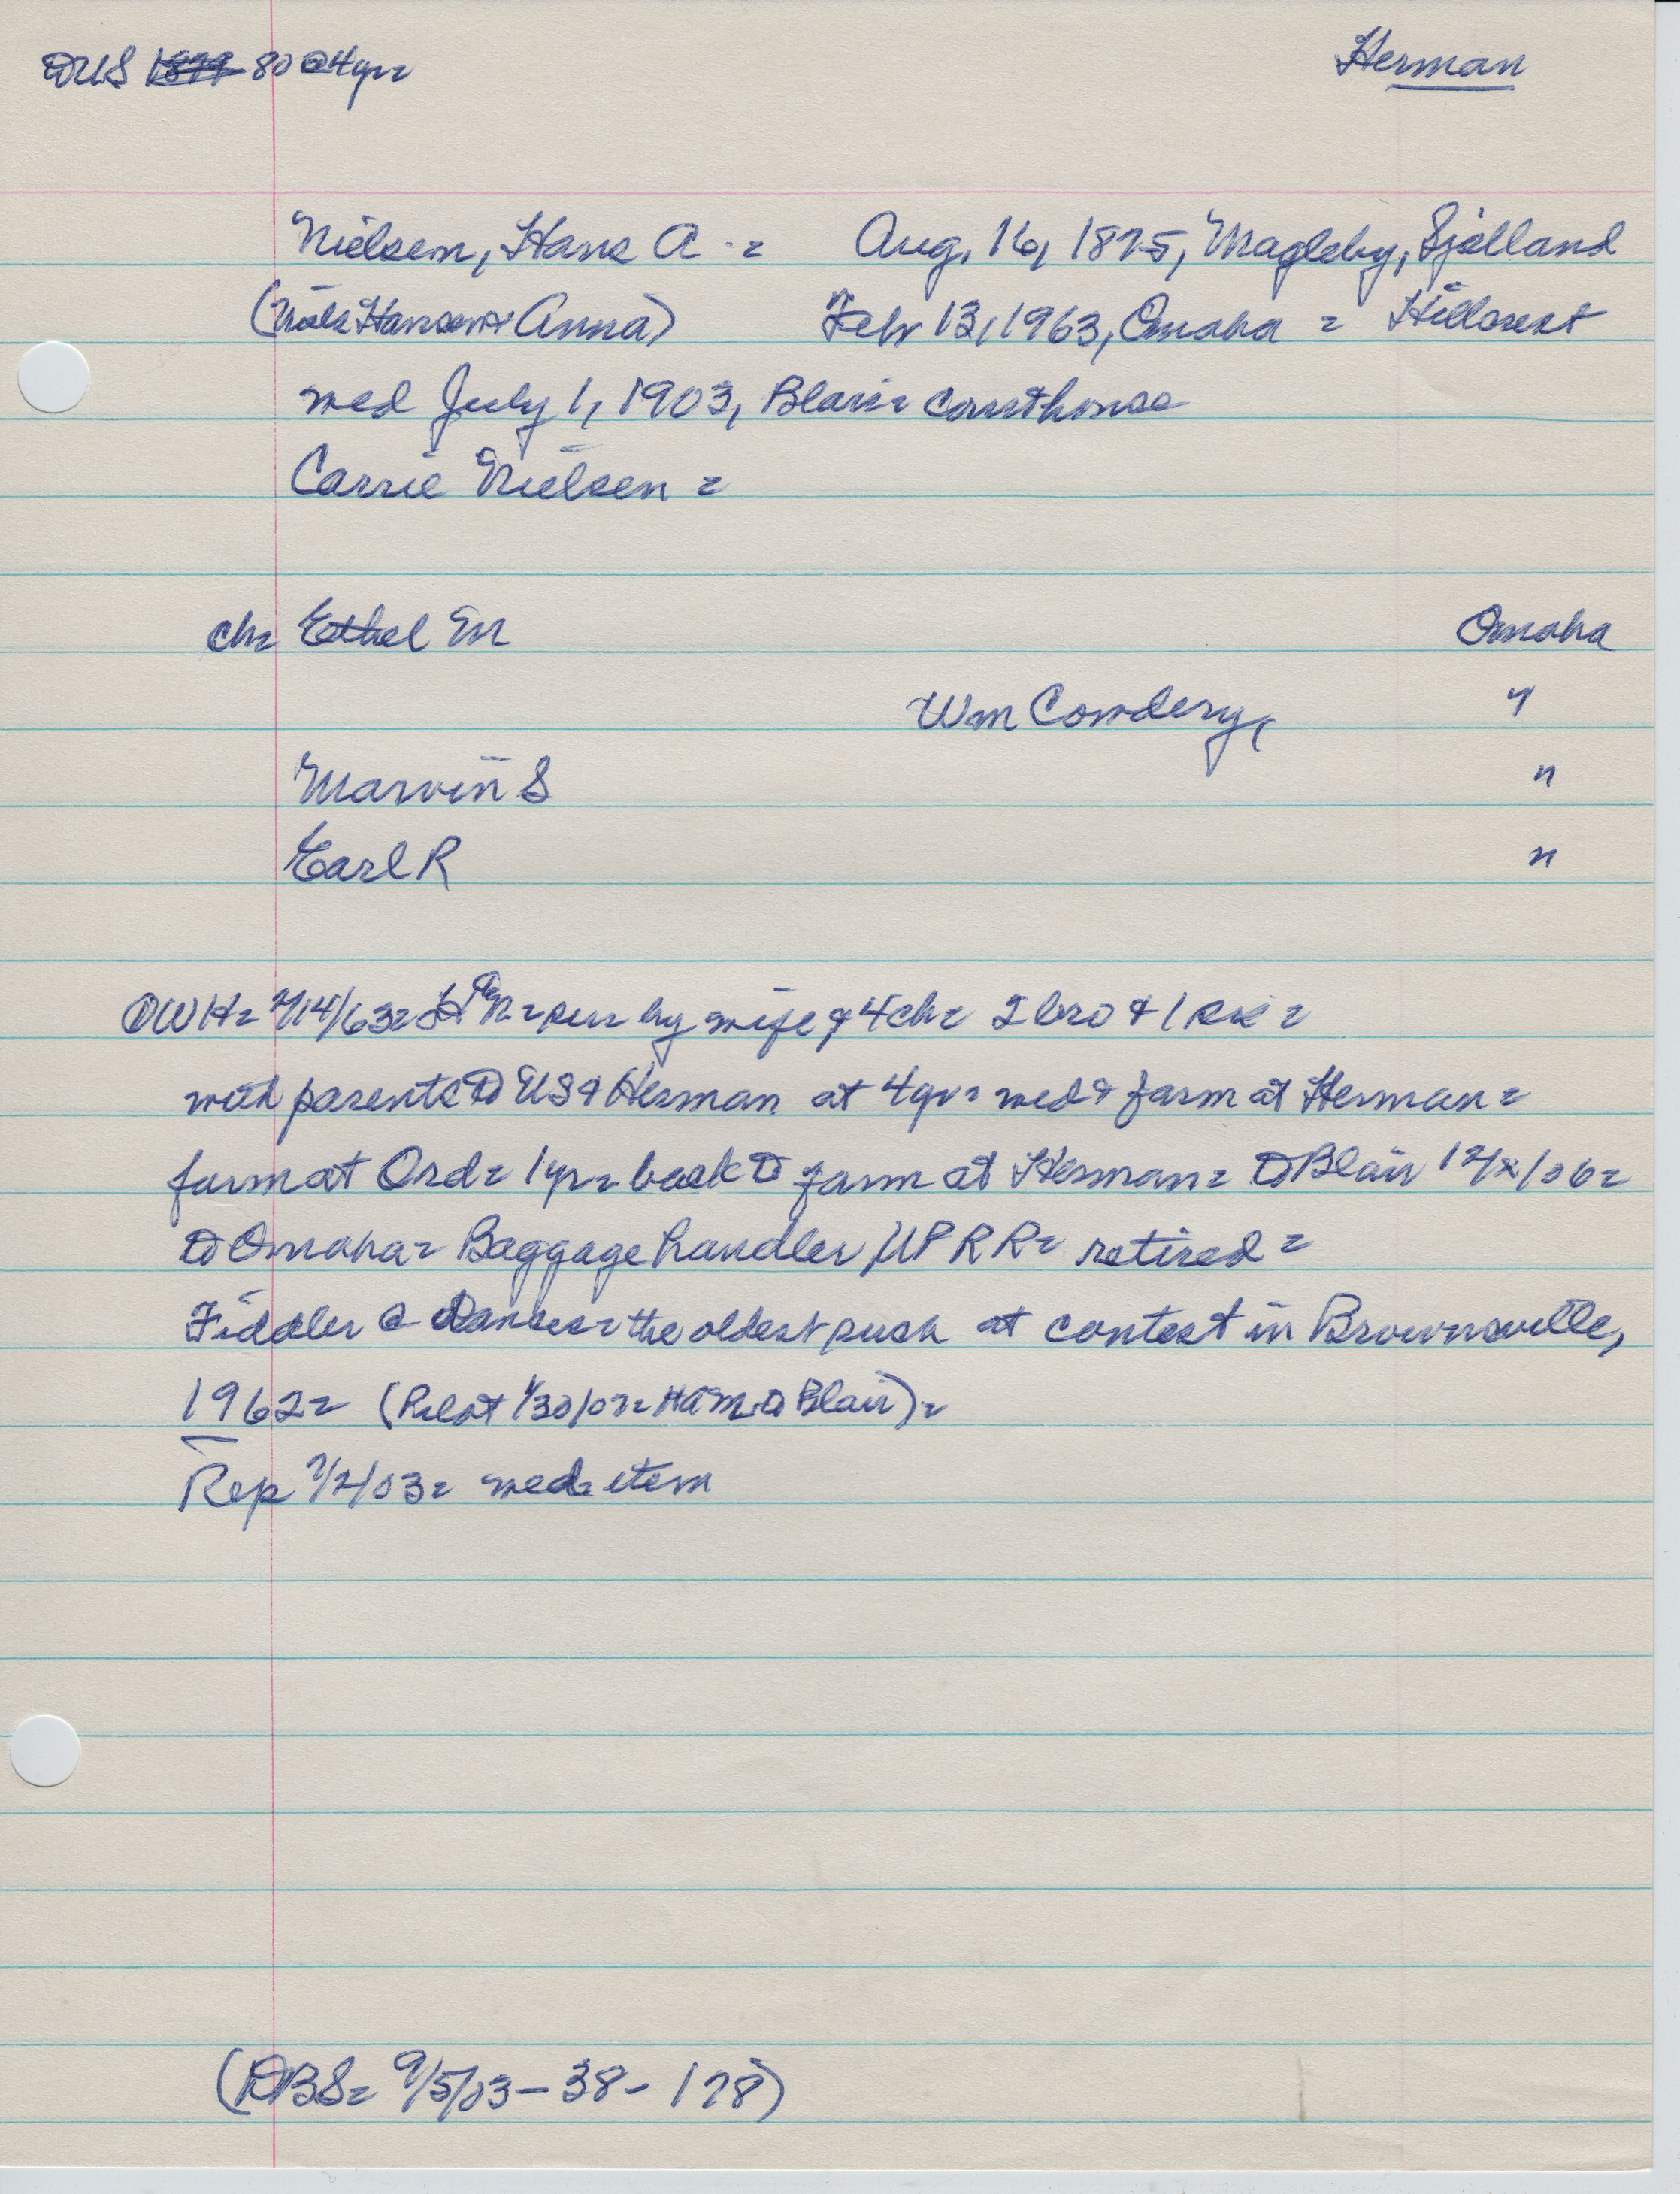 US 1879 80 @ 4 yr =
Herman
Nielsen, Hans A = Aug. 16, 1875, Magleby, Sjælland
(Niels Hansen + Anna) Feb 13, 1963, Omaha = Hillcrest
med July 1, 1903, Blair = courthouse
Carrie Nielsen =
ch = Ethel M Omaha
Wm Cowdery, "
Marvin S "
Earl R "
OWH = 2/14/63 = = sur by wife & 4 ch = 2 bro & 1 sis =
with parents to US & Herman at 4 yr = med & farm at Herman =
farm at Ord = 1 yr = back to farm at Herman = to Blair 12/x/06 =
to Omaha = Baggage handler, UPRR = retired =
Fiddler @ dances = the oldest such at contest in Brownsville,
1962 = (Pilot 1/30/07 = to Blair) =
Rep 7/2/03 = med = item
(DBS = 9/5/03 - 38 - 178)